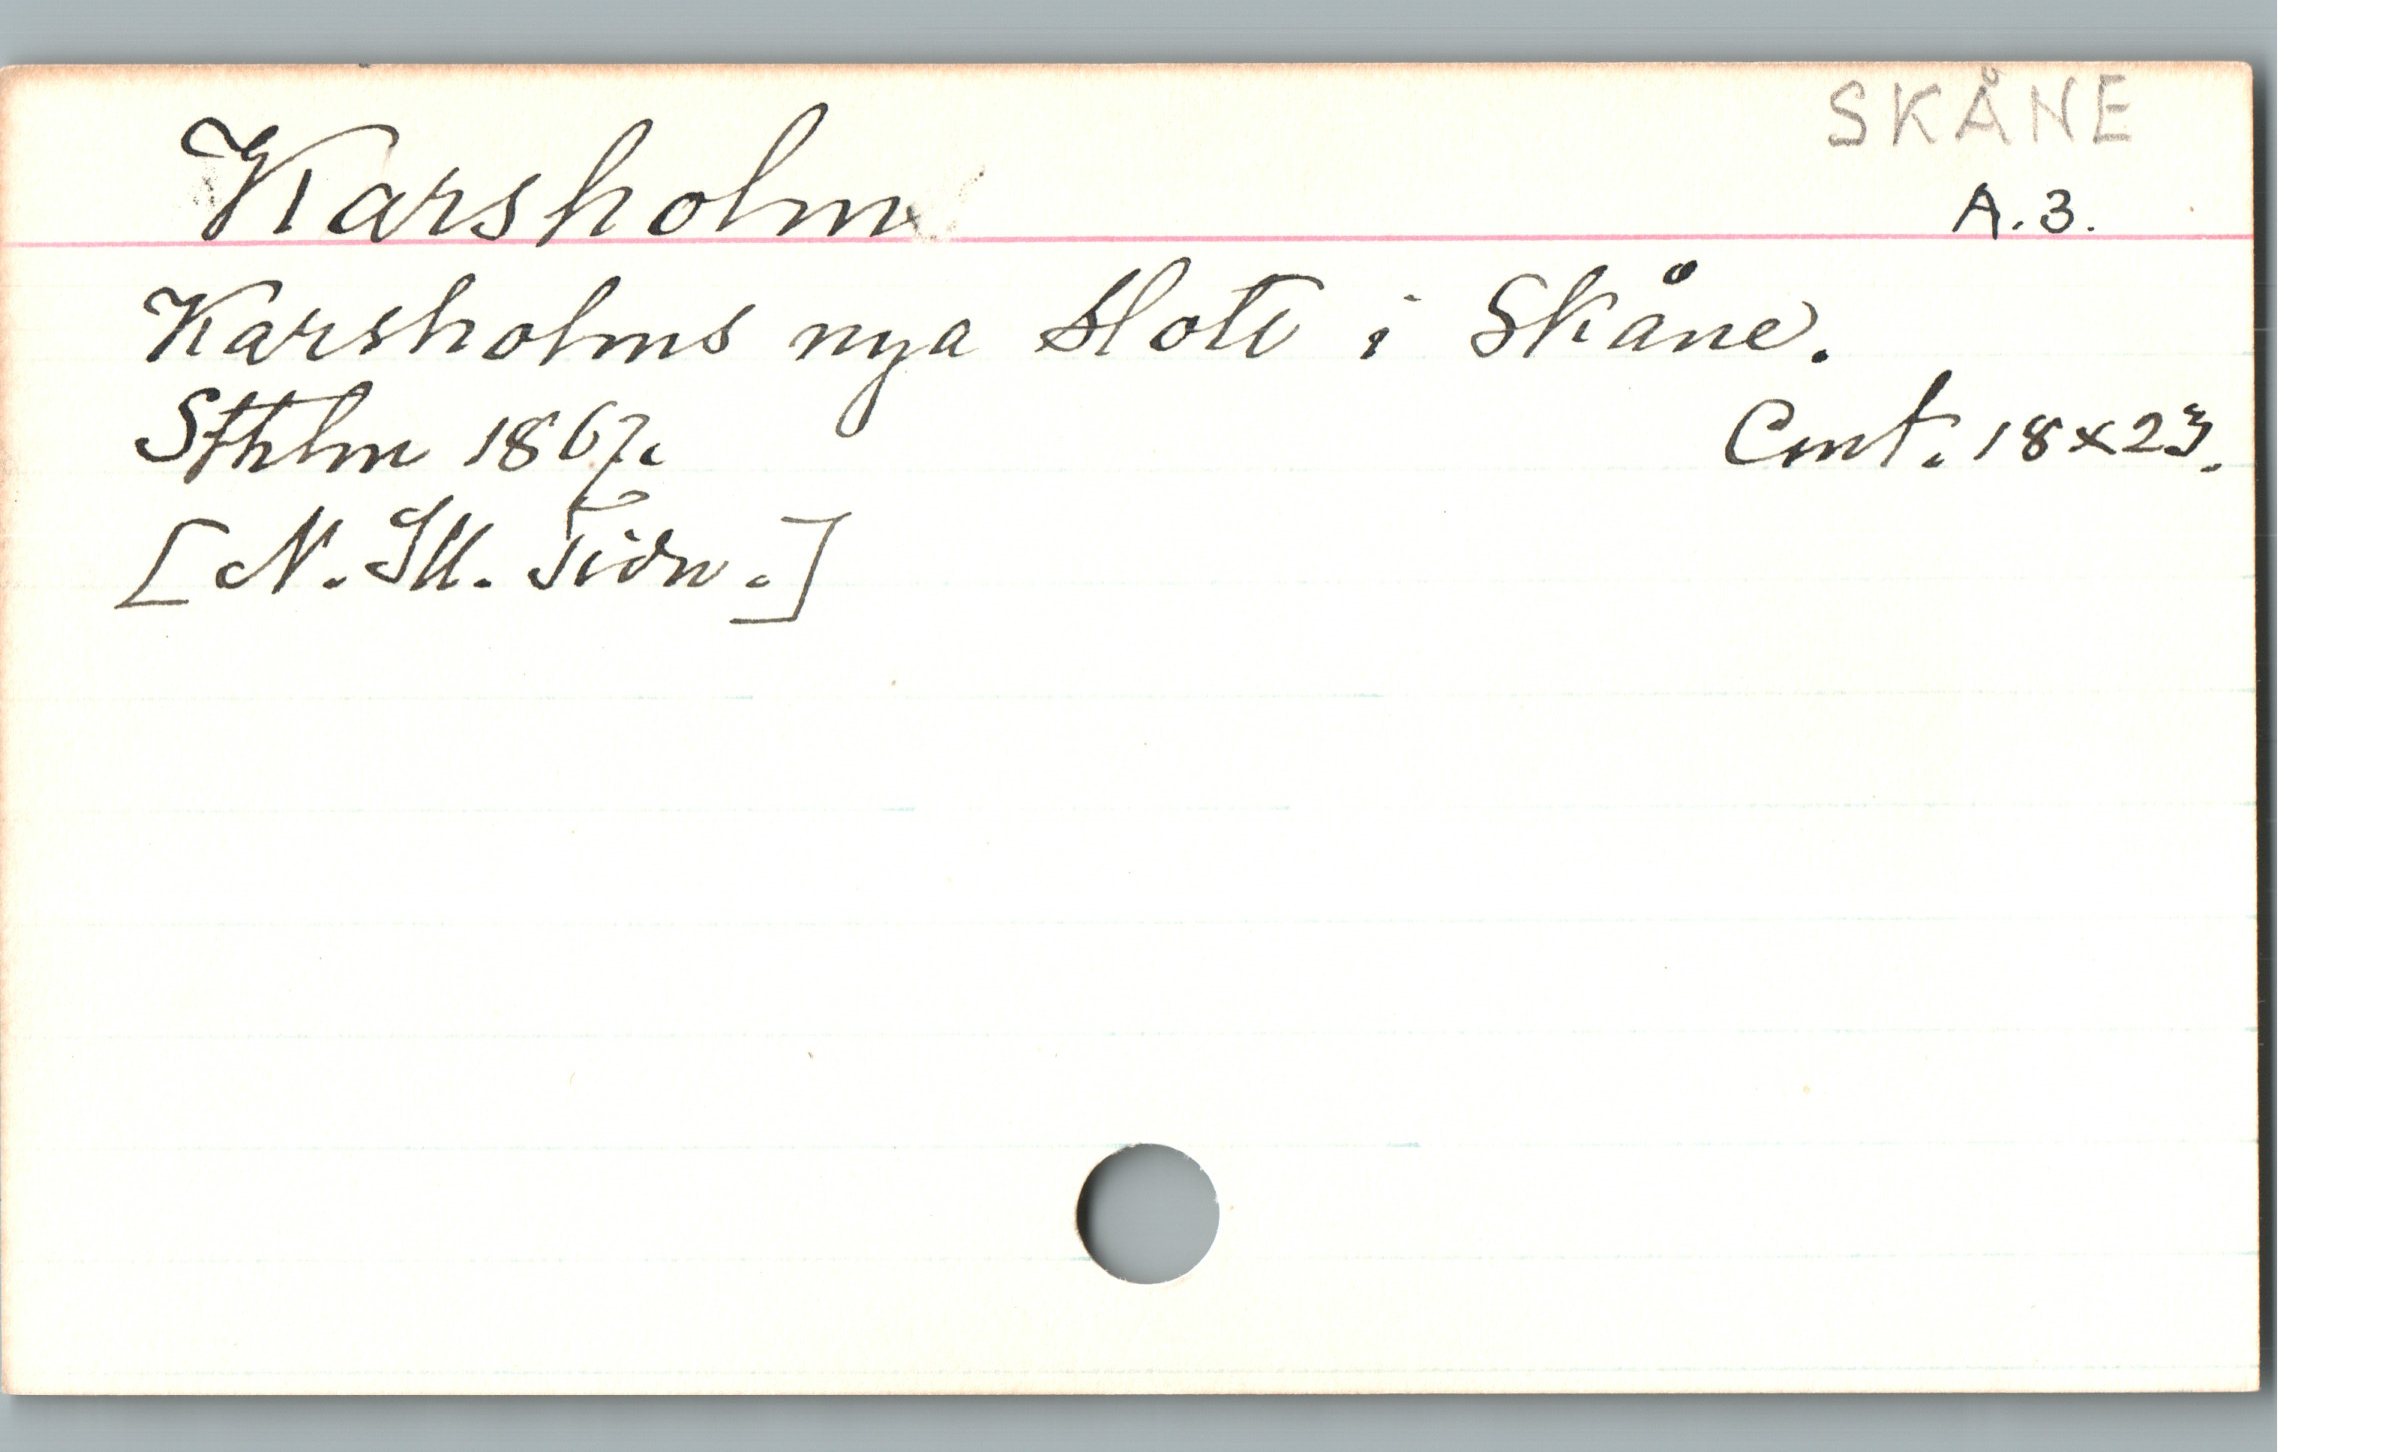 SKÅNE
Karsholm
A.3.
Karsholms nya slott i Skåne.
Sthlm 1867.
Cmt. 18x23.
[N. Ill. Tidn.]